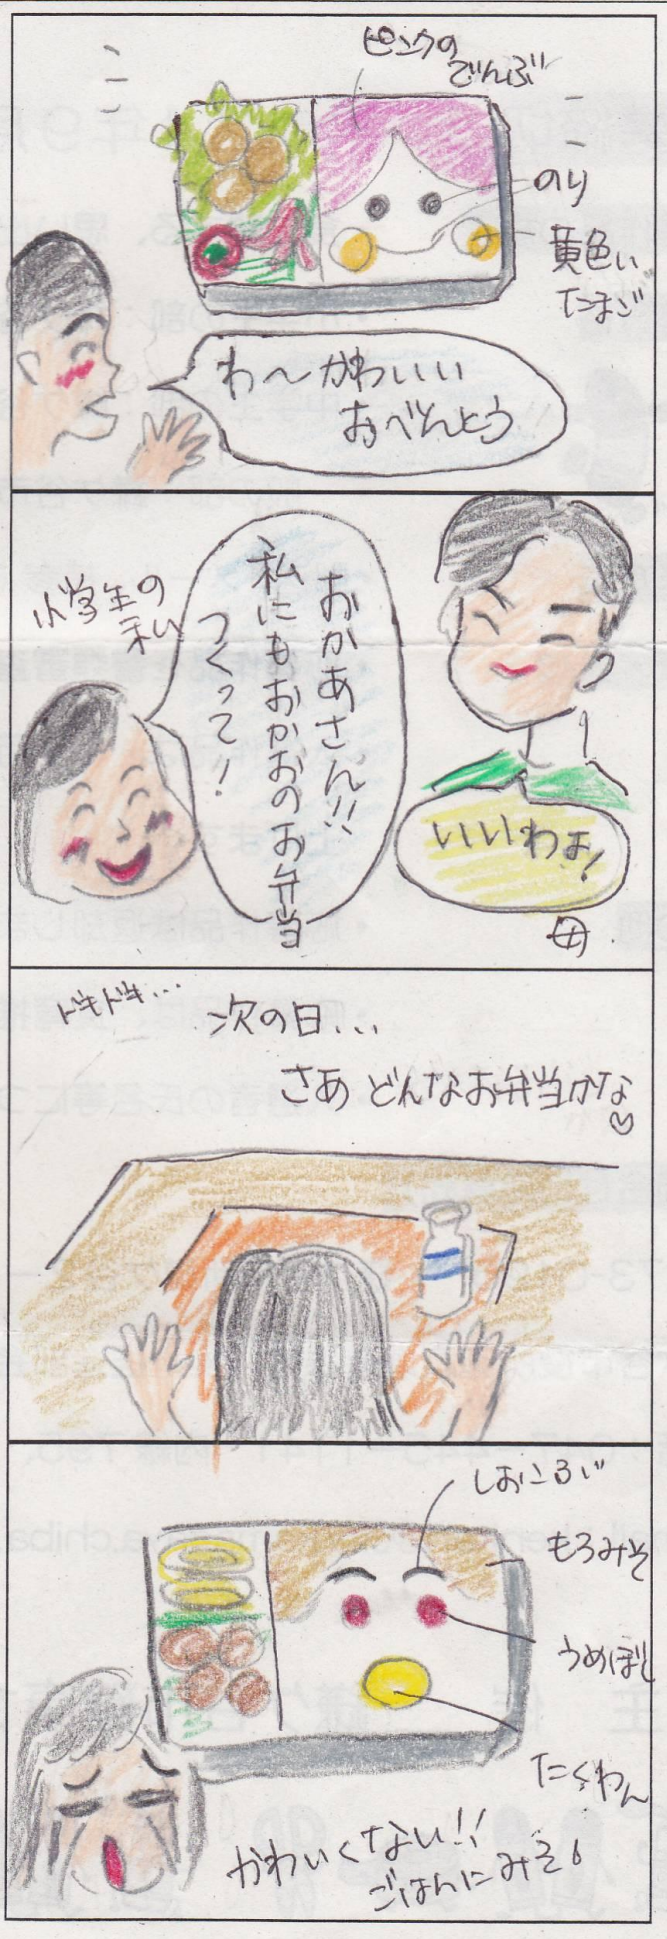 ピンクの
でんぶ
のり
黄色い
たまご
わ〜かわいい
おべんとう!!
小学生の
私
おかあさん!!
私にもおかおのお弁当
つくって!
いいわよ!
母
ドキドキ...
次の日...
さあ どんなお弁当かな♡
しおこぶ
もろみそ
うめぼし
たくわん
かわいくない!!
ごはんにみそ。